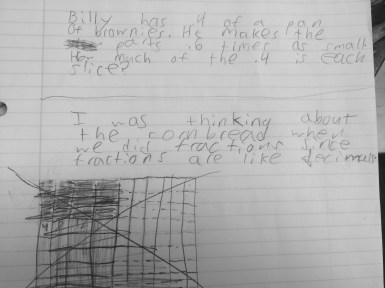 Billy has .4 of a pan
of brownies. He makes the
parts .6 times as small
How much of the .4 is each
slice?
I was thinking about
the cornbread when
we did fractions since
fractions are like decimals